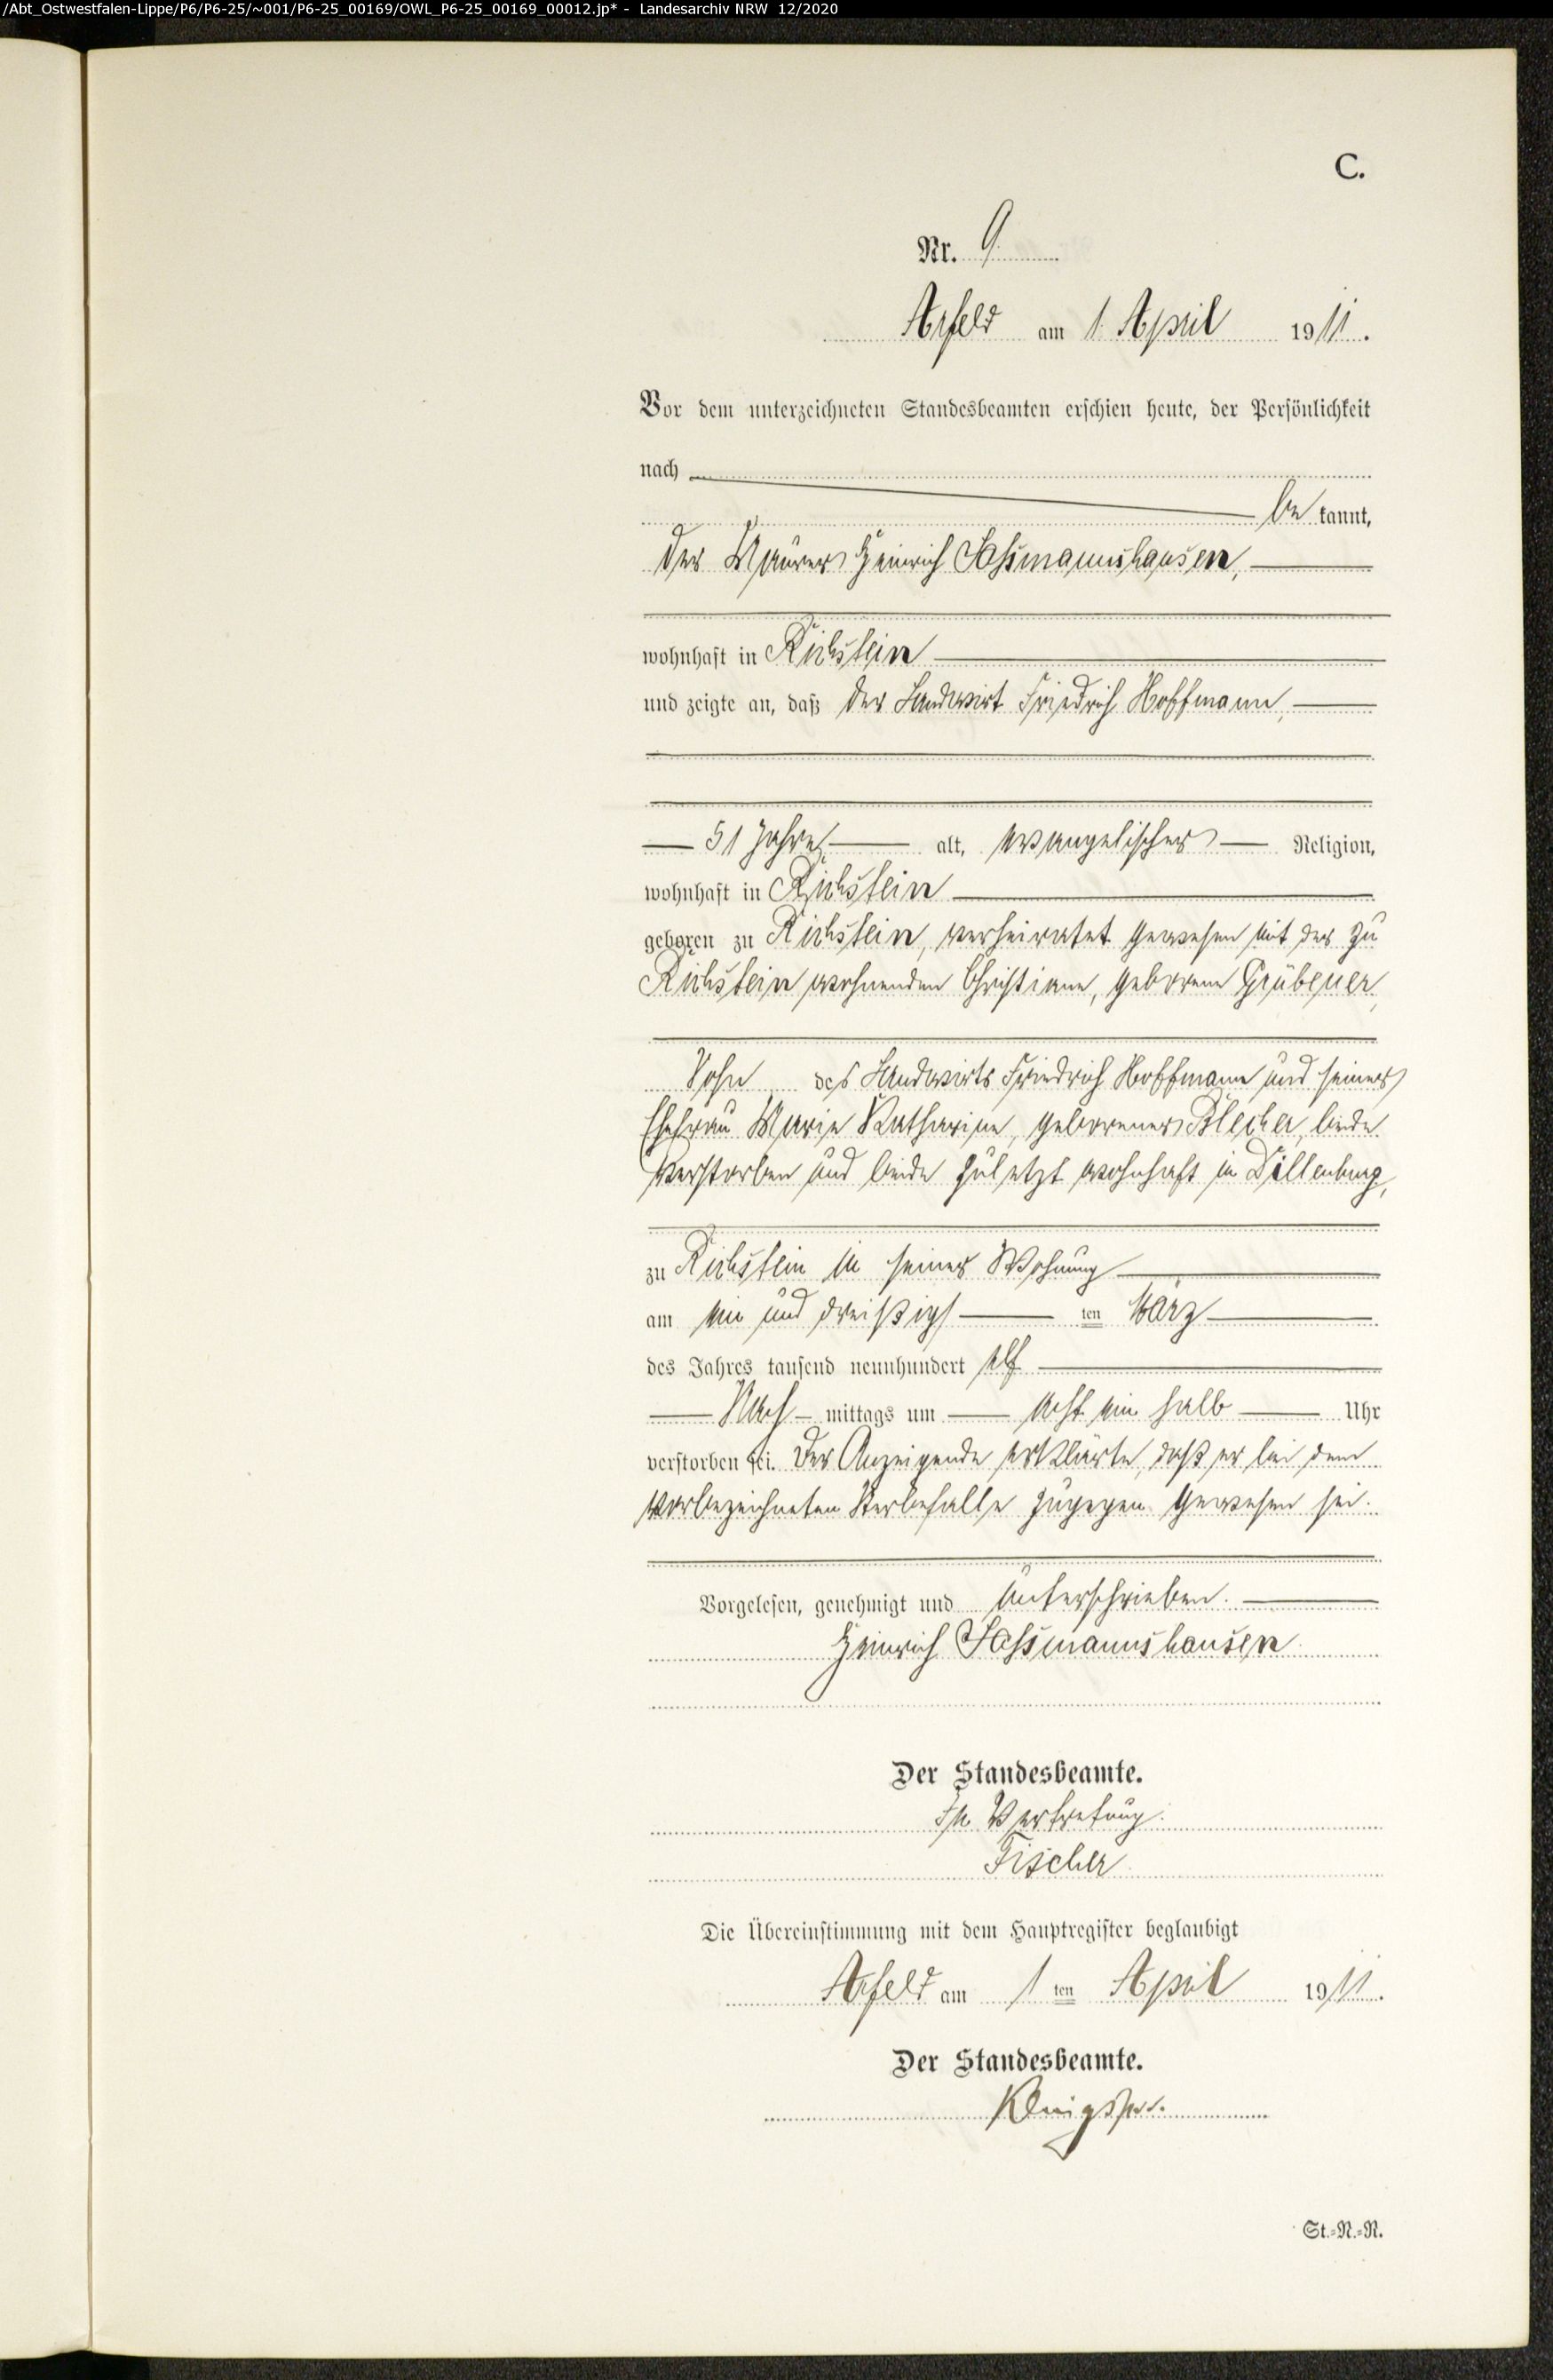 /Abt_Ostwestfalen-Lippe/P6/P6-25/~001/P6-25_00169/OWL_P6-25_00169_00012.jp* - Landesarchiv NRW 12/2020
C.
Nr. 9
Arfeld am 1. April 1911.
Vor dem unterzeichneten Standesbeamten erschien heute, der Persönlichkeit
nach
be kannt,
der Maurer Heinrich Sassmannshausen,
wohnhaft in Richstein
und zeigte an, daß der Landwirt Friedrich Hoffmann,
51 Jahre alt, evangelischer Religion,
wohnhaft in Richstein
geboren zu Richstein, verheiratet gewesen mit der zu
Richstein wohnenden Christiane, geborene Grübener,
Sohn des Landwirts Friedrich Hoffmann und seiner
Ehefrau Marie Katharine, geborener Blecher, beide
verstorben und beide zuletzt wohnhaft in Dillenburg,
zu Richstein in seiner Wohnung
am ein und dreißigsten März
des Jahres tausend neunhundert elf
Nach mittags um acht ein halb Uhr
verstorben sei. Der Anzeigende erklärte, daß er bei dem
vorbezeichneten Sterbefalle zugegen gewesen sei.
Vorgelesen, genehmigt und unterschrieben.
Heinrich Sassmannshausen
Der Standesbeamte.
In Vertretung.
Fischer
Die Übereinstimmung mit dem Hauptregister beglaubigt
Arfeld am 1 ten April 1911.
Der Standesbeamte.
St.=N.=R.